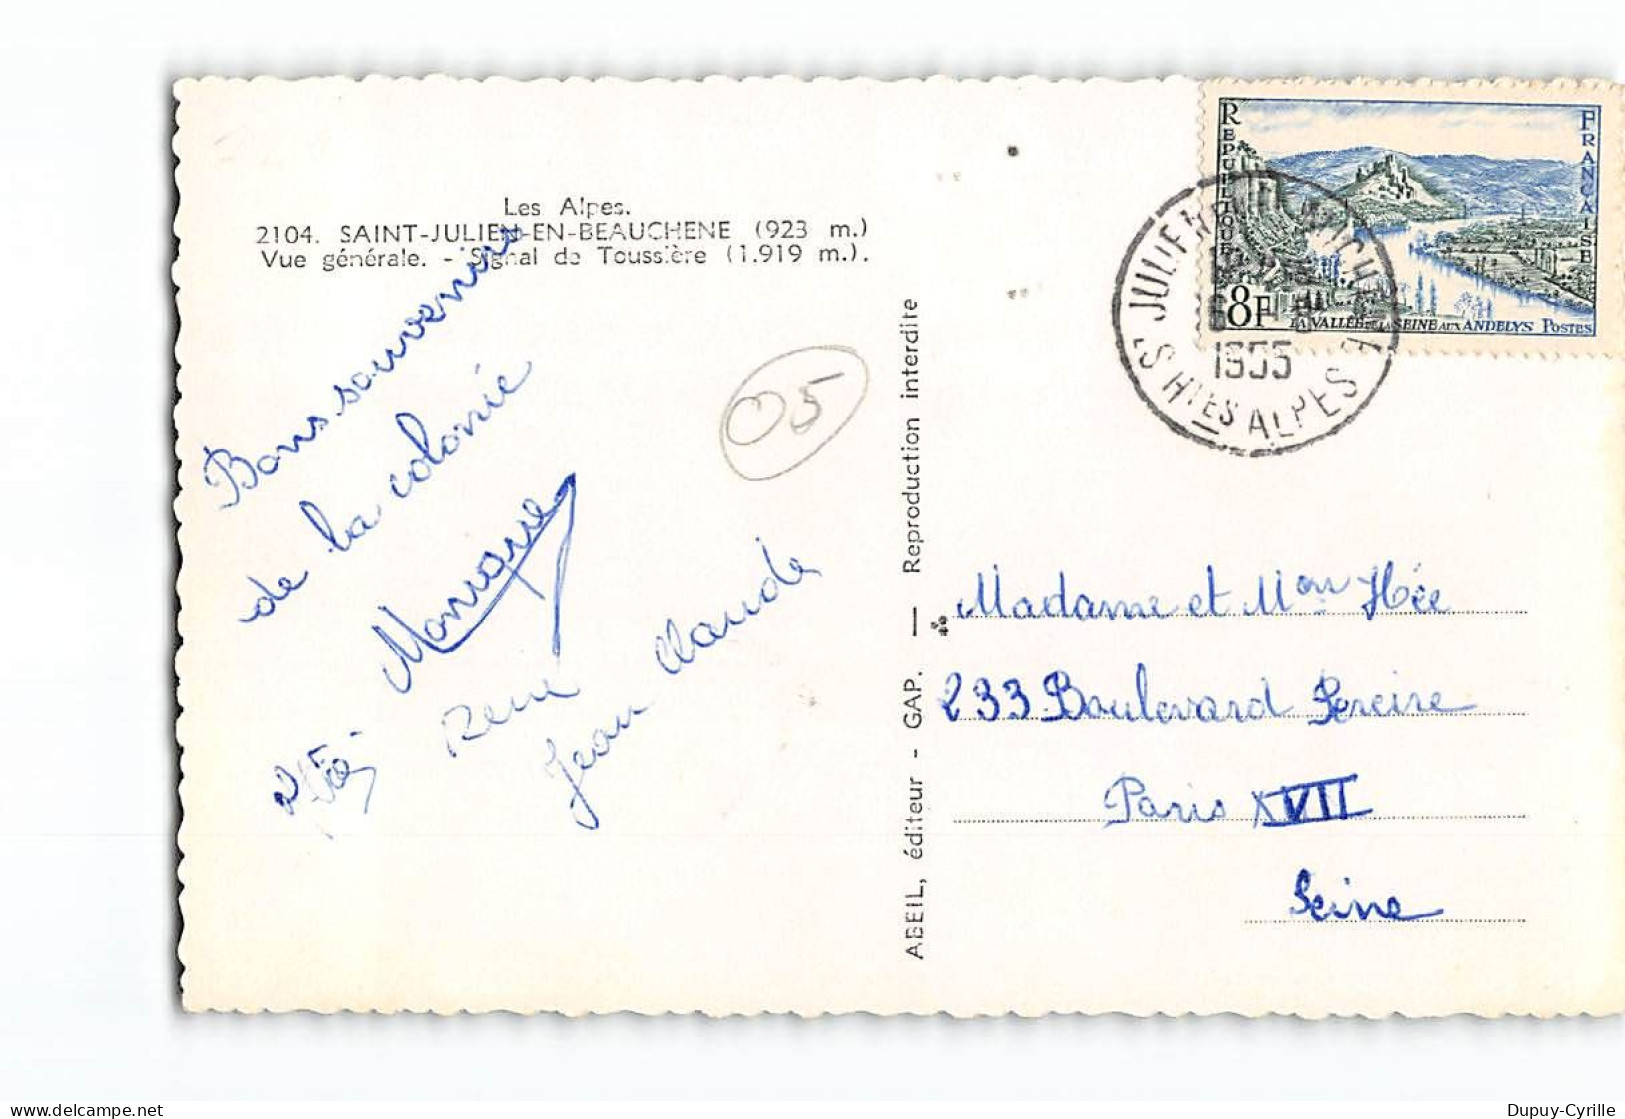 Les Alpes.
2104. SAINT-JULIEN-EN-BEAUCHENE (923 m.)
Vue générale. - Signal de Toussière (1.919 m.).
Bons souvenirs
de la colonie
Monique
René
Jean Claude
05
ABEIL, éditeur - GAP. — Reproduction interdite
REPUBLIQUE
FRANCAISE
8F
LA VALLÉE DE LA SEINE AUX ANDELYS POSTES
1955
HTES ALPES
Madame et Mon Hée
233 Boulevard Pereire
Paris XVII
Seine
Dupuy-Cyrille